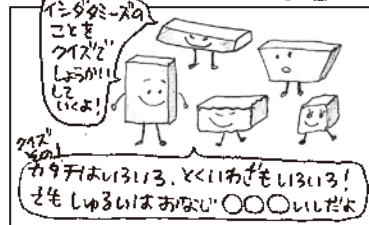 イシダタミーズの
ことを
クイズで
しょうかい
して
いくよ!
クイズ
その1
カタチはいろいろ、とくいわざもいろいろ!
でも しゅるいは おなじ ○○○いしだよ